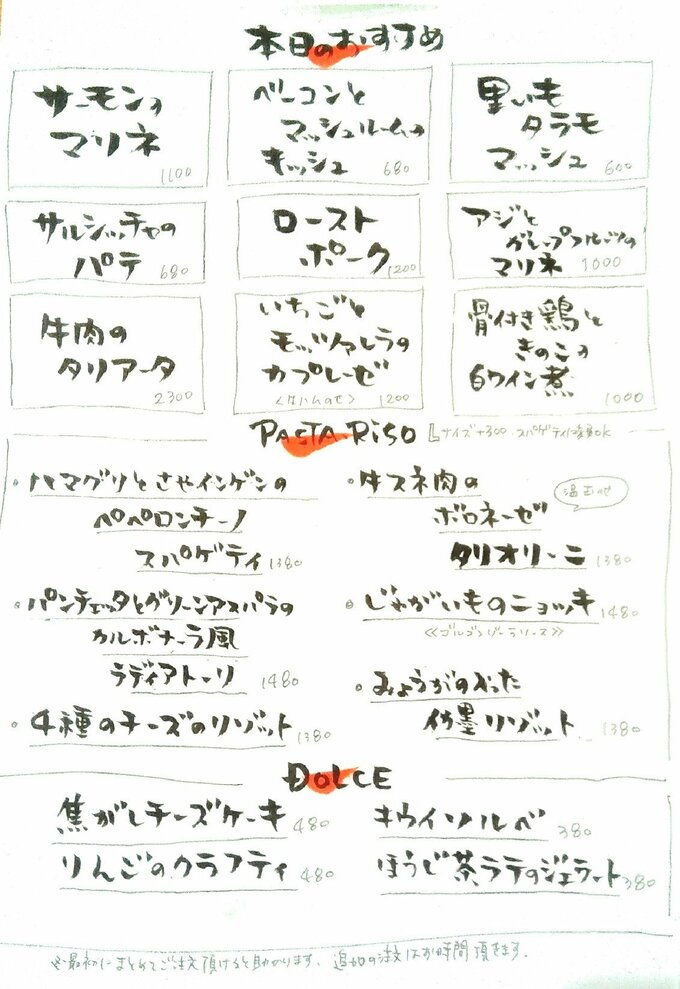 本日のおすすめ
サーモンの
マリネ
1100
ベーコンと
マッシュルームの
キッシュ 680
里いも
タラモ
マッシュ 600
サルシッチャの
パテ 680
ロースト
ポーク 1200
アジと
グレープフルーツの
マリネ 1000
牛肉の
タリアータ
2300
いちごと
モッツァレラの
カプレーゼ
<生ハムのせ> 1200
骨付き鶏と
きのこの
白ワイン煮
1000
PASTA・RISO Lサイズ+300・スパゲティに変更OK
・ハマグリとさやインゲンの
ペペロンチーノ
スパゲティ 1380
・パンチェッタとグリーンアスパラの
カルボナーラ風
ラディアトーリ 1480
・4種のチーズのリゾット 1380
・牛スネ肉の
温玉のせ
ボロネーゼ
タリオリーニ 1380
・じゃがいものニョッキ 1480
≪ゴルゴンゾーラソース≫
・みょうがの入った
イカ墨リゾット 1380
DOLCE
焦がしチーズケーキ 480
りんごのクラフティ 480
キウイソルベ 380
ほうじ茶ラテのジェラート 380
最初にまとめてご注文頂けると助かります。追加の注文はお時間頂きます。